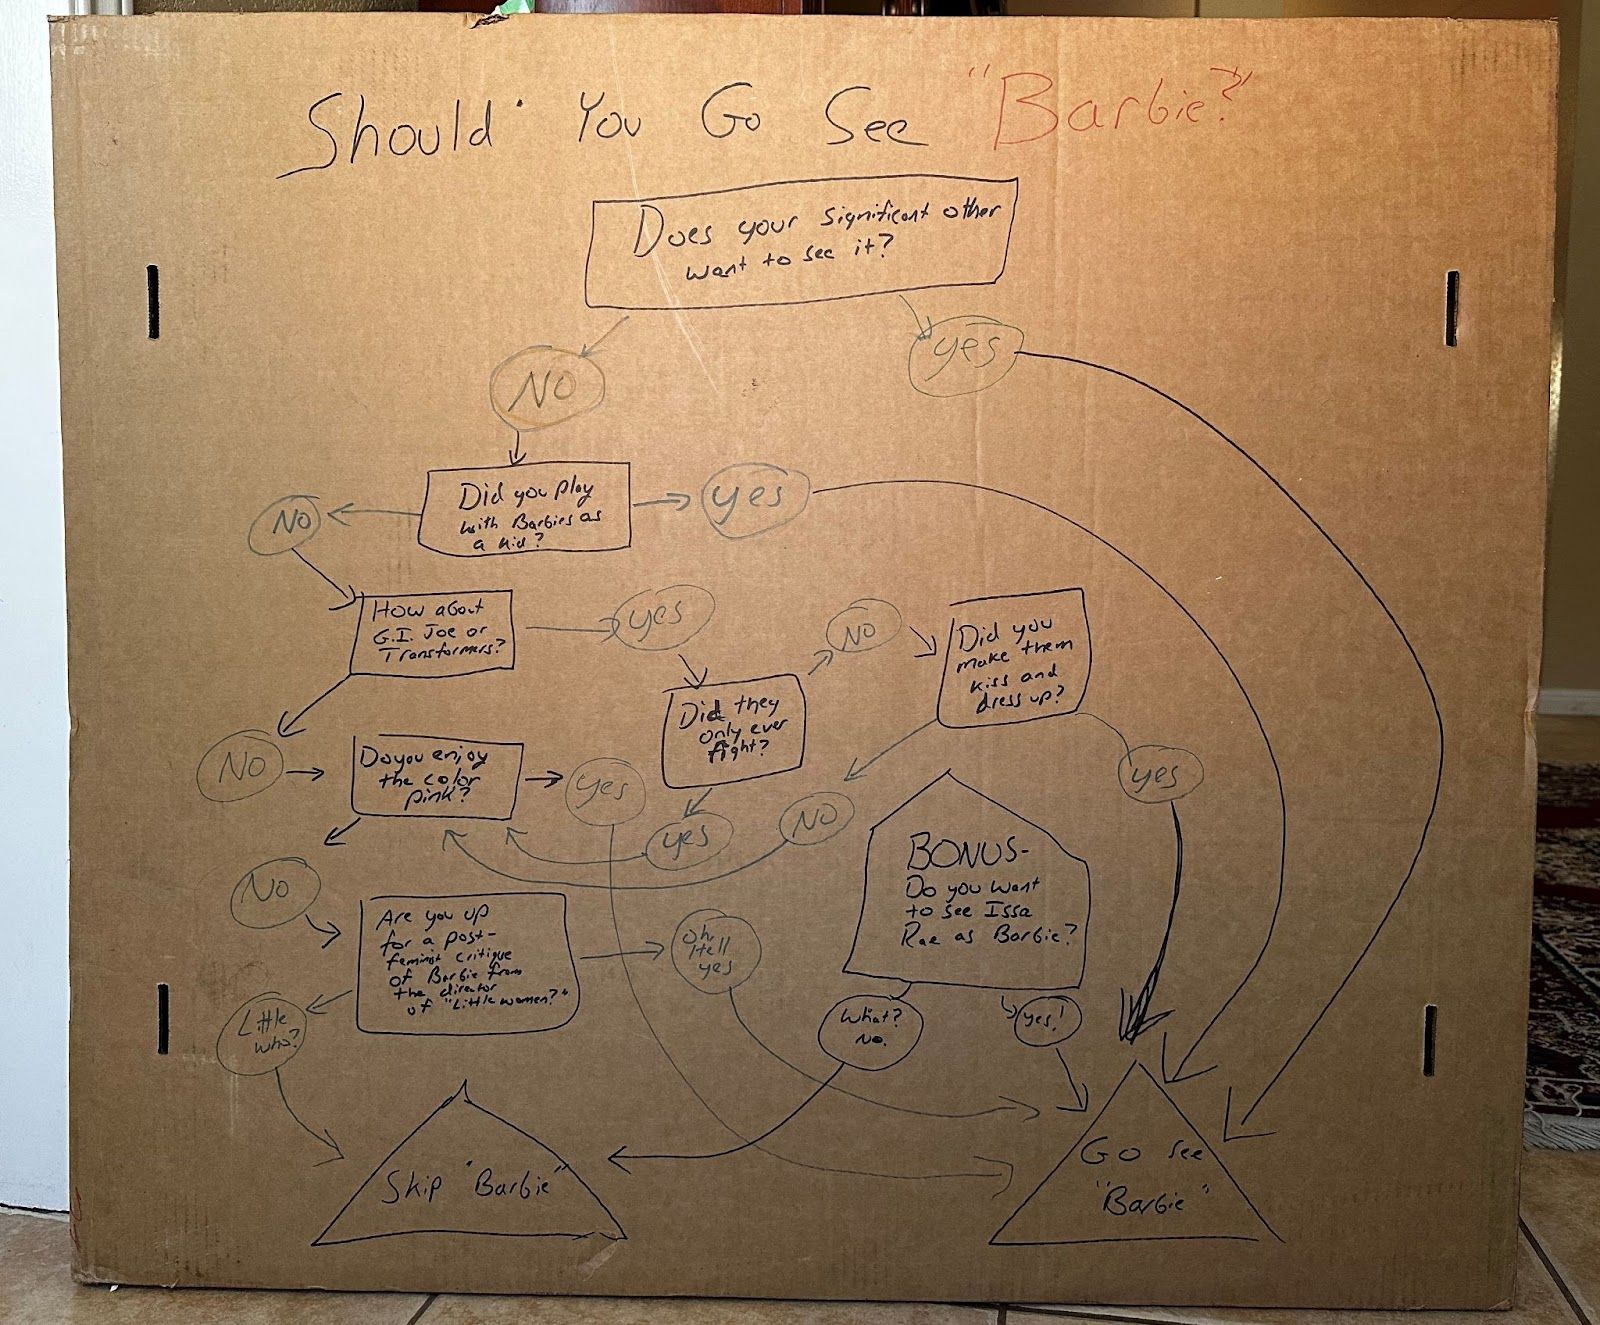 Should You Go See "Barbie?"
Does your significant other
want to see it?
NO
yes
Did you play
with Barbies as
a kid?
NO
yes
How about
G.I. Joe or
Transformers?
yes
NO
Did you
make them
kiss and
dress up?
Did they
only ever
fight?
NO
Do you enjoy
the color
pink?
yes
yes
NO
yes
BONUS-
Do you want
to see Issa
Rae as Barbie?
NO
Are you up
for a post-
feminist critique
of Barbie from
the director
of "Little women?"
Oh
Hell
yes
Little
who?
What?
No.
yes!
Skip "Barbie"
Go see
"Barbie"